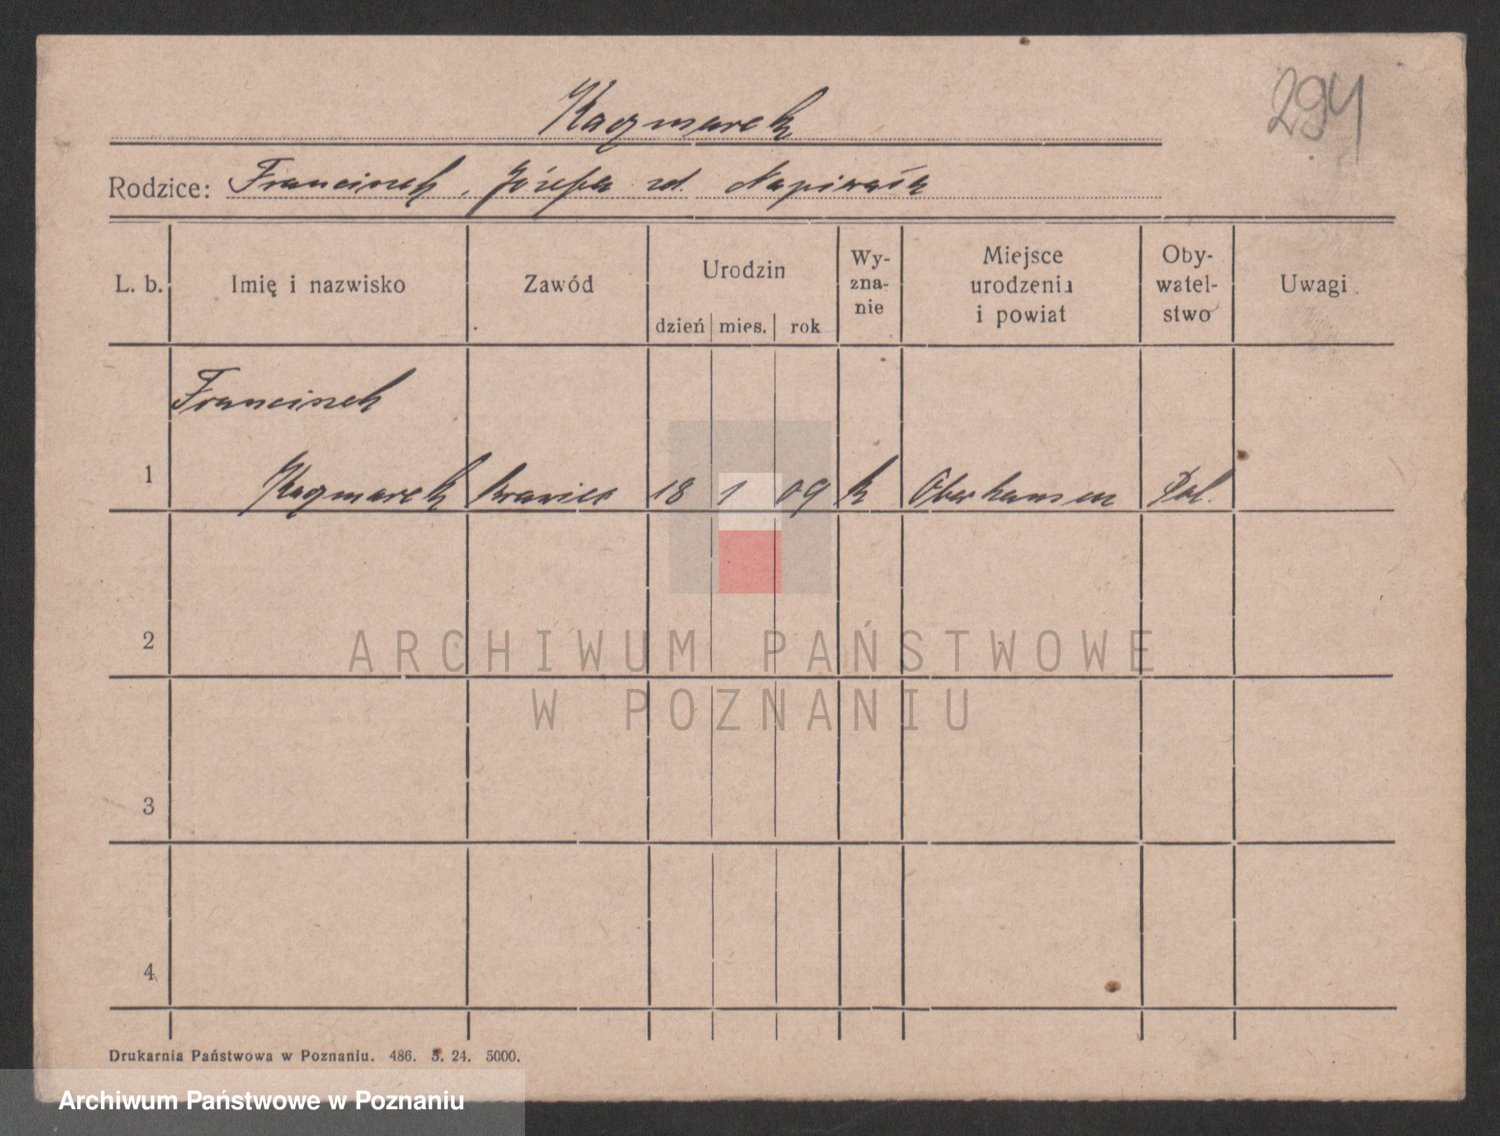 294
Kaczmarek
Rodzice: Franciszek, Józefa zd. Napierała
L. b. Imię i nazwisko Zawód Urodzin dzień mies. rok Wy-zna-nie Miejsce urodzenia i powiat Oby-watel-stwo Uwagi
Franciszek
1 Kaczmarek krawiec 18 1 09 k Oberhausen Pol.
2
ARCHIWUM PAŃSTWOWE
W POZNANIU
3
4
Drukarnia Państwowa w Poznaniu. 486. 5. 24. 5000.
Archiwum Państwowe w Poznaniu